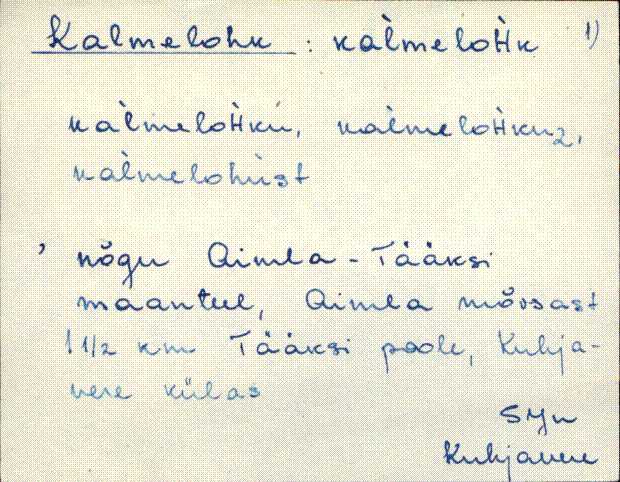 Kalmelohk : kàlmeloHk 1)
kàlmeloHkù, kàlmeloHku2,
kàlmelohùst
, nõgu Aimla-Tääksi
maanteel, Aimla mõisast
1 1/2 km Tääksi poole, Kuhja-
vere külas
SJn
Kuhjavere